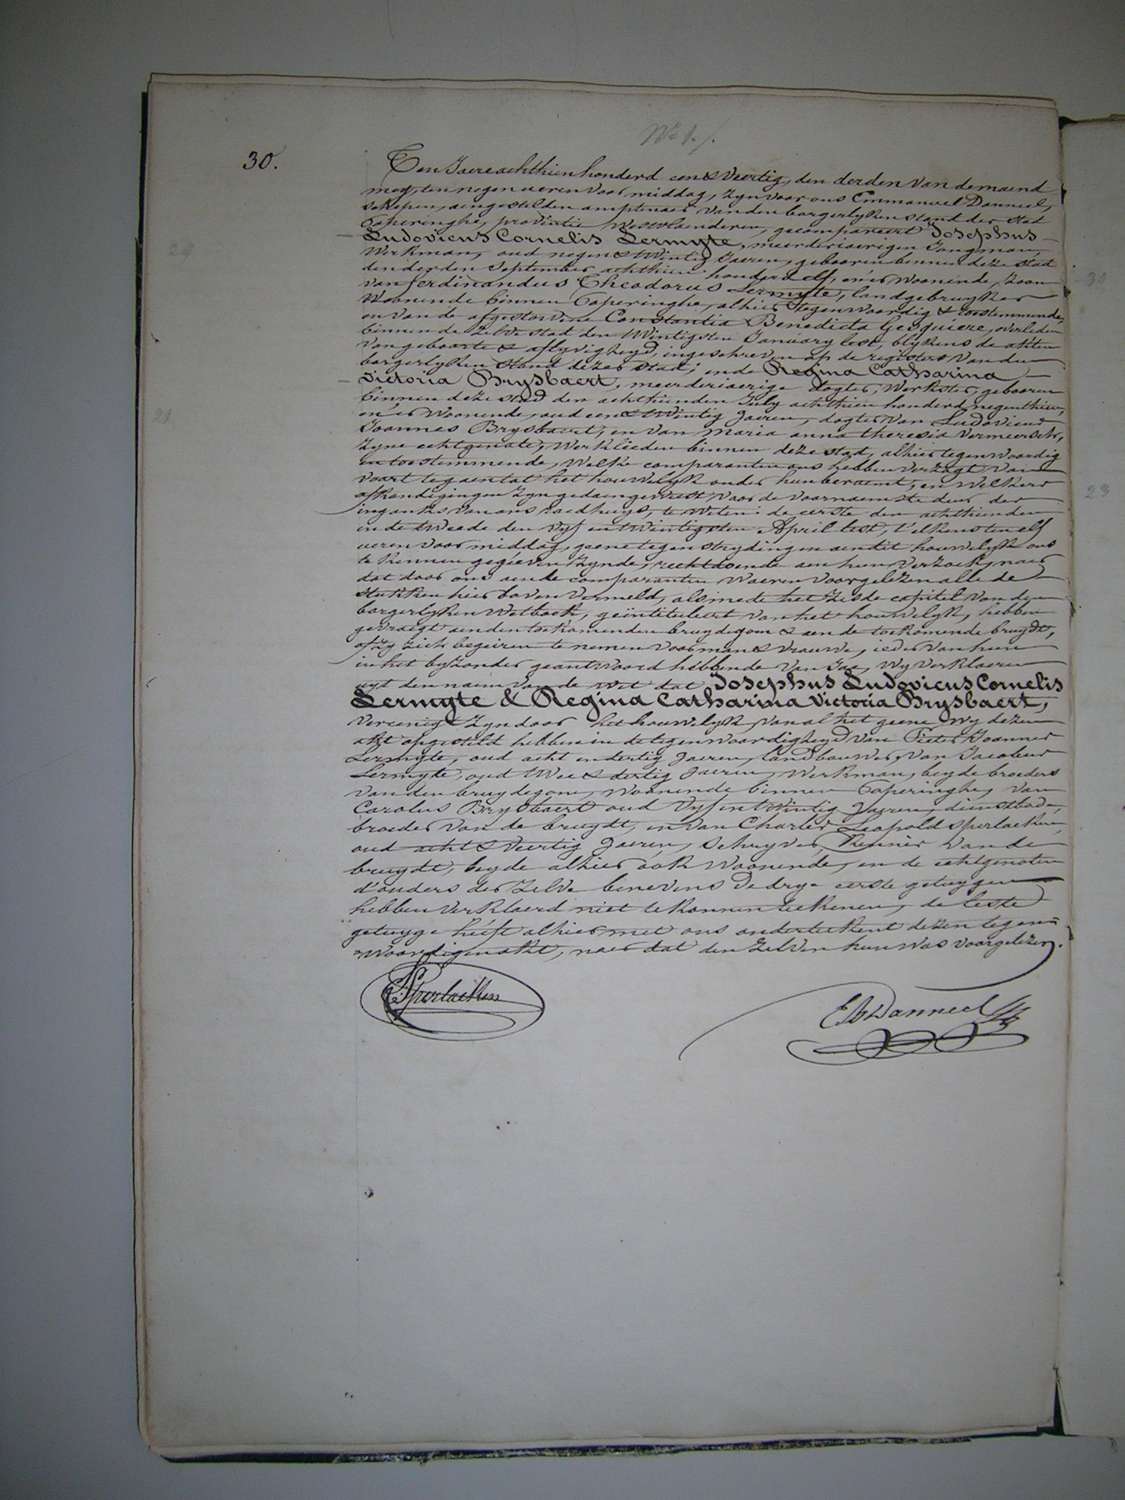 N° 1./.
30.
Ten Jaere achthien honderd een & Veertig, den derden van de maend
mey, ten negen ueren voor middag, zyn voor ons Emmanuel Danneel,
schepen, aengestelden amptenaer van den borgerlyken stand der stad
Poperinghe, provintie Westvlaenderen, gecompareert Josephus
Ludovicus Cornelis Lermyte, meerderjaerigen Jongman,
Werkman, oud negen & twintig Jaeren, gebooren binnen deze stad
den derden September achthien honderd elf, en er Woonende, zoon
van Ferdinandus Theodorus Lermyte, landgebruyker
Woonende binnen Poperinghe, alhier tegenwoordig & toestemmende,
en van de afgestorvene Constantia Benedicta Gesquiere, overleden
binnen de zelve stad den twintigsten January lest, blykens de akten
van geboorte & aflyvigheyd, ingeschreven op de registers van den
borgerlyken stand dezer stad; ende Regina Catharina
Victoria Brysbaert, meerderjaerige dogter, Werkster, gebooren
binnen deze stad den achthienden July achthien honderd negenthien,
en er Woonende, oud een & twintig Jaeren, dogter van Ludovicus
Joannes Brysbaert, en van Maria anna theresia Vermeersch,
zyne echtgenote, Werklieden binnen deze stad, alhier tegenwoordig
en toestemmende, Welke comparanten ons hebben verzogt van
voort te gaen tot het houwelyk onder hun beraemt, en welkers
afkondigingen zyn gedaen geweest voor de voornaemste deur der
ingank van ons raedhuys, te Weten: de eerste den achthienden
en de tweede den vyf en twintigsten April lest, t'elkens ten elf
ueren voor middag, geene tegenstrydingen aen dit houwelyk ons
te kennen gegeven zynde, rechtdoende aen hun verzoek, naer
dat door ons aen de comparanten Waeren voorgelezen alle de
stukken hier boven vermeld, alsmede het zesde capitel van den
borgerlyken Wetboek, geïntituleert van het houwelyk, hebben
gevraegt aen den toekomenden bruydegom & aen de toekomende bruydt,
of zy zich begeiren te nemen voor man & vrouwe, ieder van hun
in het byzonder geantwoord hebbende van Ja, Wy verklaeren
uyt den naem van de Wet dat Josephus Ludovicus Cornelis
Lermyte & Regina Catharina Victoria Brysbaert,
vereenigt zyn door het houwelyk, van al het geene Wy dezen
akt opgesteld hebben in de tegenwoordigheyd van Pieter Joannes
Lermyte, oud acht en dertig Jaeren, landbouwer, van Jacobus
Lermyte, oud twee & dertig Jaeren, Werkman, beyde broeders
van den bruydegom, Woonende binnen Poperinghe, van
Carolus Brysbaert oud vyf en twintig Jaeren, dienstbode,
broeder van de bruydt, en van Charles Leopold Sperlaeken,
oud acht & veertig Jaeren, schryver, kenner van de
bruydt, beyde alhier ook Woonende, en de echtgenoten
d'ouders der zelve benevens de drye eerste getuygen
hebben verklaerd niet te konnen teekenen, de leste
getuyge heeft alhier met ons onderteekent dezen tegen-
woordigen akt, naer dat den zelven hun was voorgelezen.
Sperlaeken
E Danneel
29